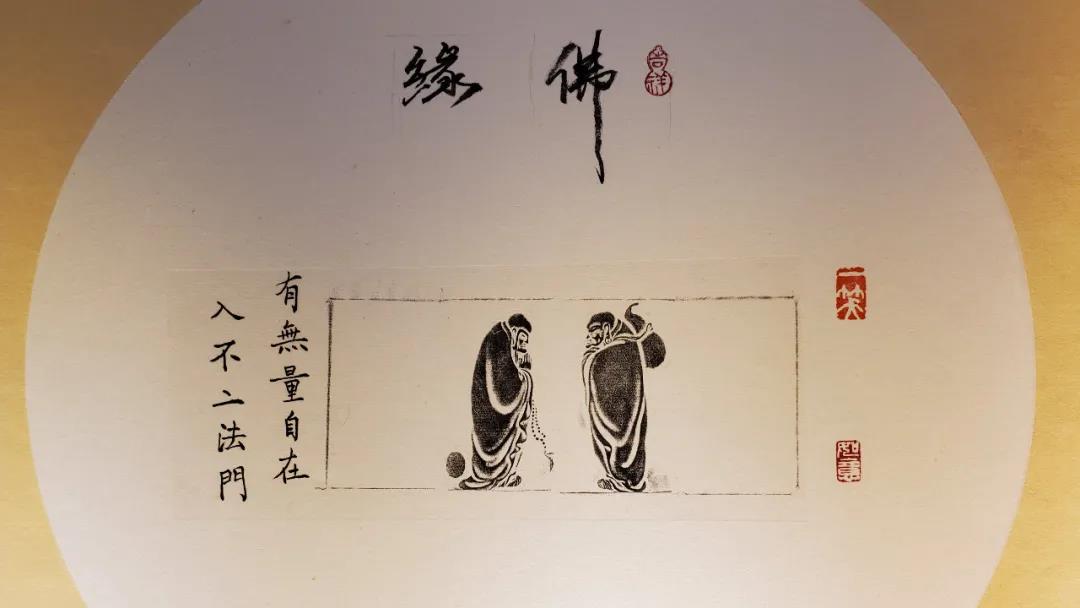 佛緣
吉祥
一笑
如意
有無量自在
入不二法門